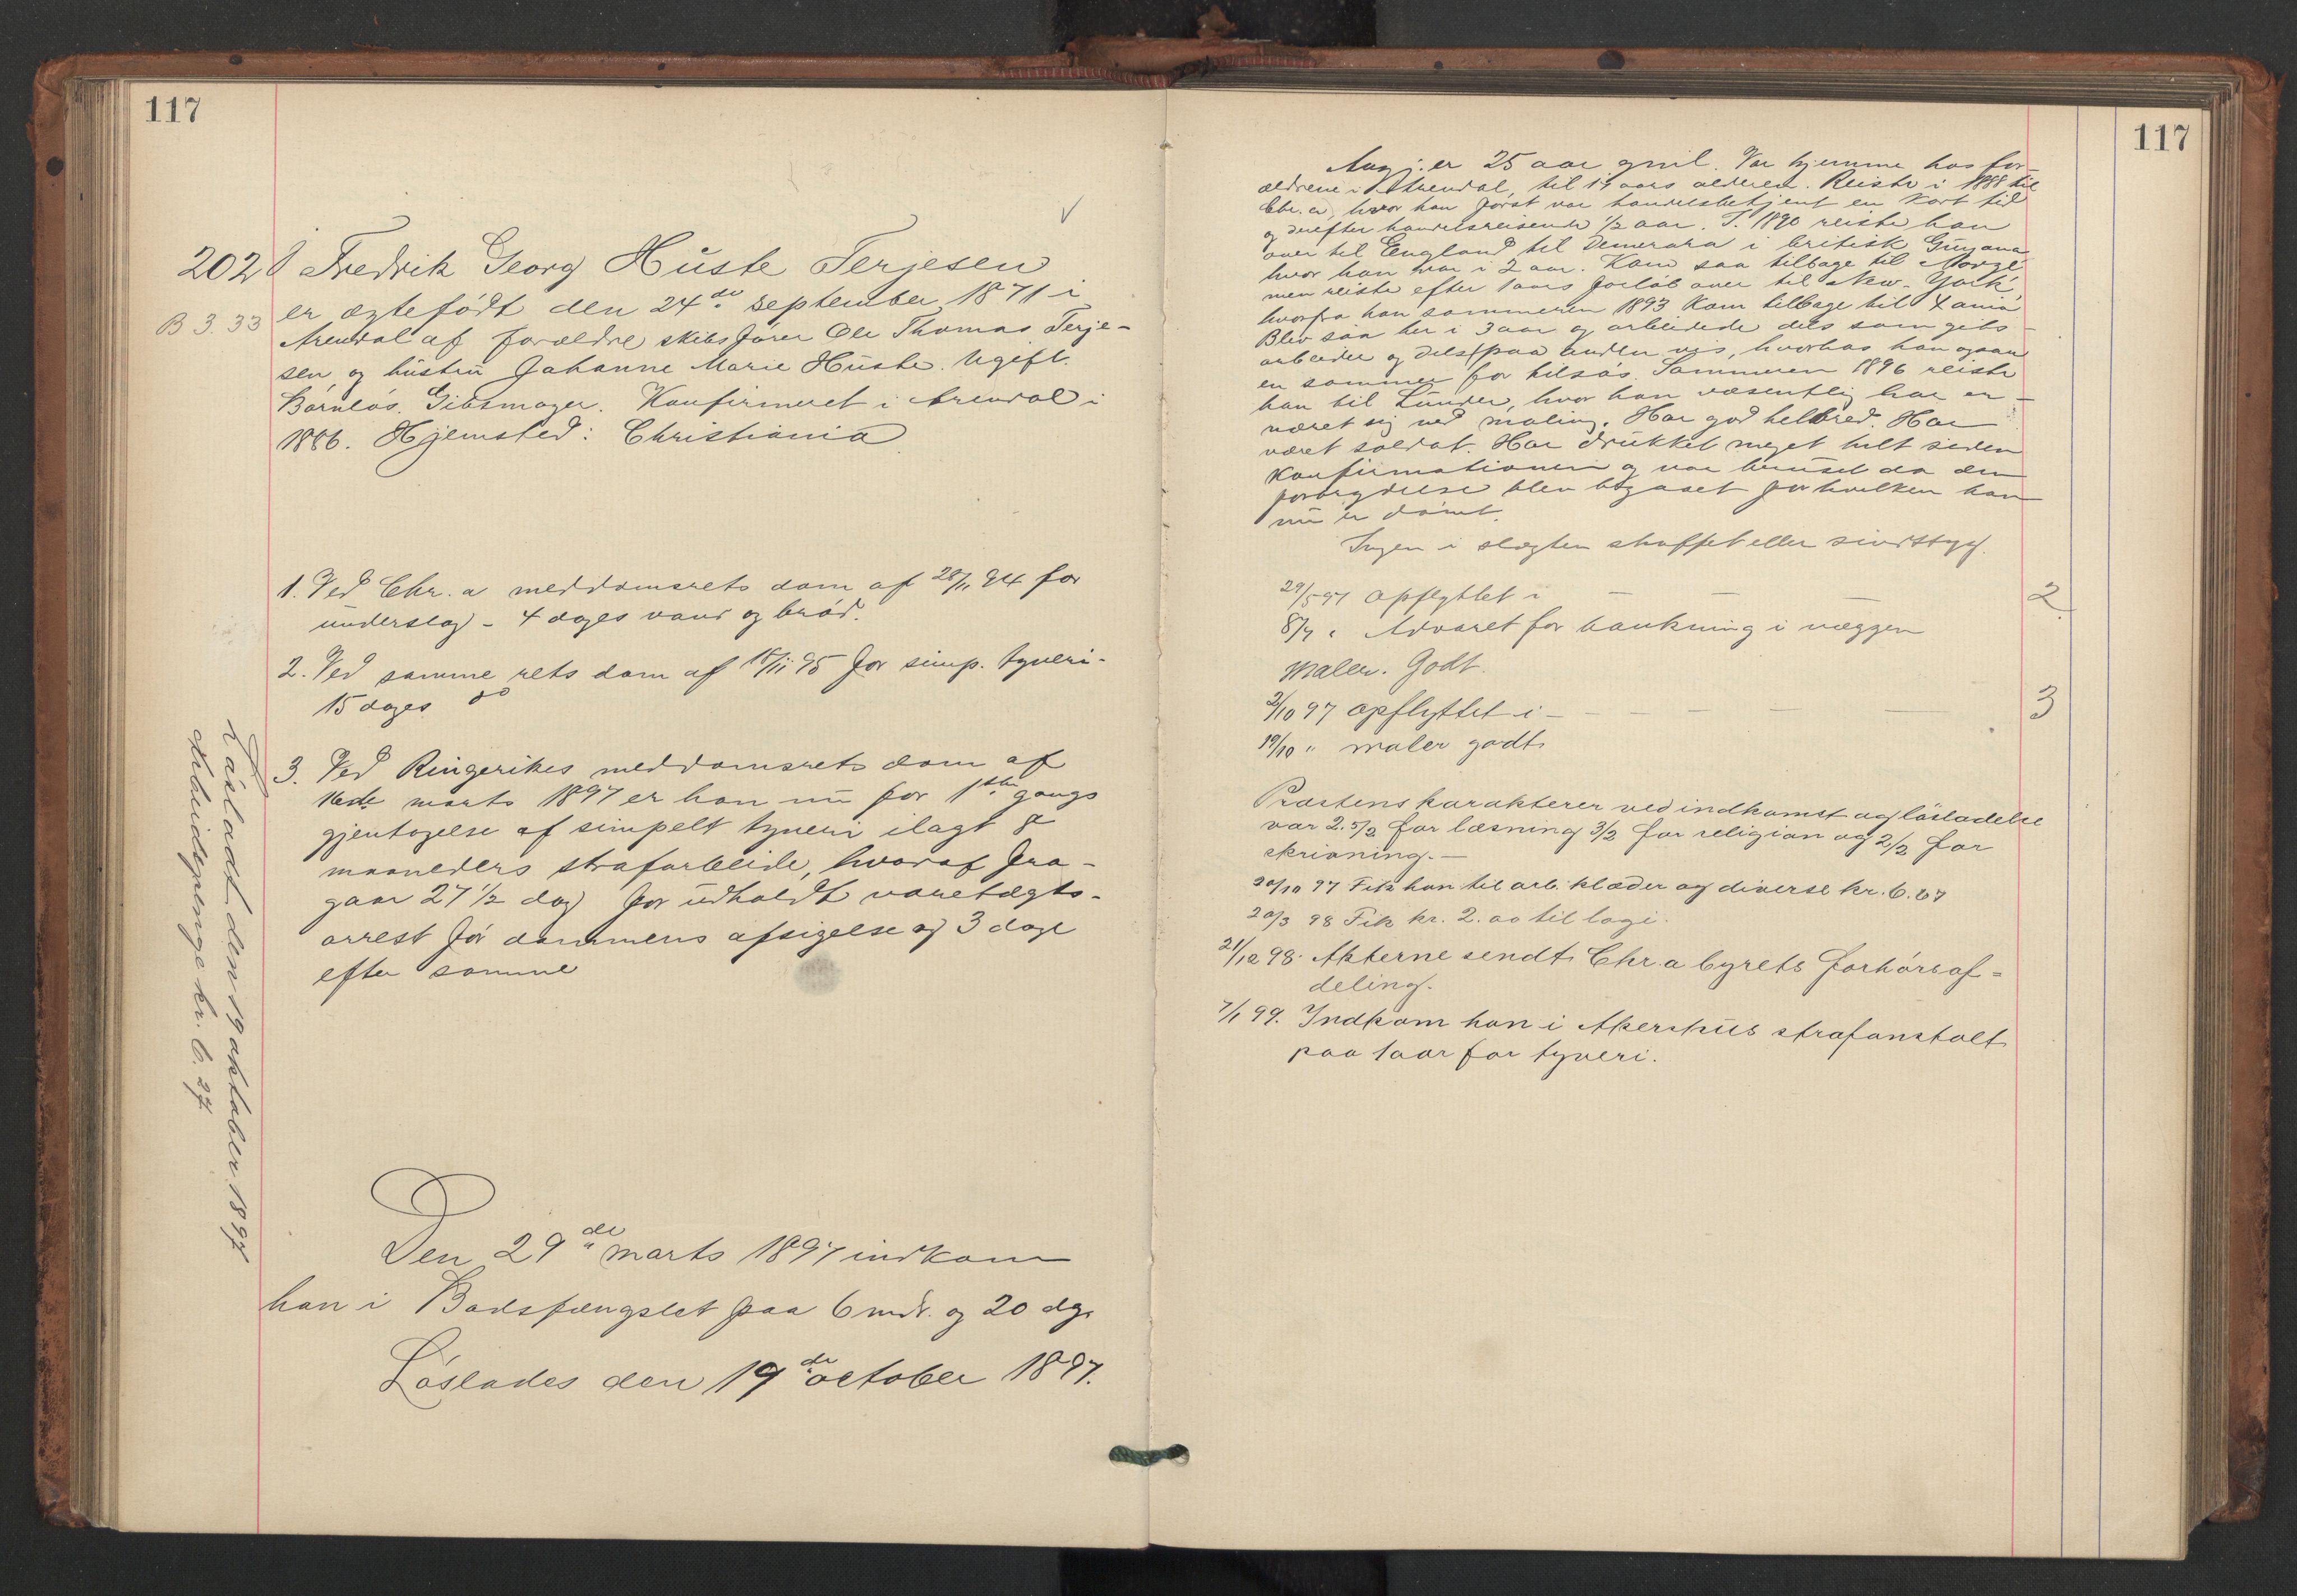 117
202 Fredrik Georg Huste Terjesen
B 3. 33
er ægtefødt den 24de september 1871 i
Arendal af forældre skibsfører Ole Thomas Terje-
sen og hustru Johanne Marie Huste. Ugift.
Barnløs. Gibsmager. Konfirmeret i Arendal i
1886. Hjemsted: Christiania
1. Ved Chr.a meddomsrets dom af 28/11 94 for
underslag - 4 dages vand og brød.
2. Ved samme rets dom af 18/11 95 for simp. tyveri-
15 dages do
3. Ved Ringerikes meddomsrets dom af
16de marts 1897 er han nu for 1ste gangs
gjentagelse af simpelt tyveri ilagt 8
maaneders strafarbeide, hvoraf fra-
gaar 27 1/2 dag for udholdt varetægts-
arrest før dommens afsigelse og 3 dage
efter samme
Løsladt den 19 oktober 1897
Arbeidspenge kr. 6.27
Den 29de marts 1897 indkom
han i Bodsfængslet paa 6 mdr. og 20 dg.
Løslades den 19de october 1897.
117
er 25 aar gml. Var hjemme hos for-
ældrene i Arendal, til 17 aars alderen. Reiste i 1888 til
Chr.a, hvor han først var handelsbetjent en kort tid
og derefter handelsreisende 1/2 aar. I 1890 reiste han
over til England til Demerara i britisk Guyana
hvor han var i 2 aar. Kom saa tilbage til Norge
men reiste efter 1 aars forløb over til New-York,
hvorfra han sommeren 1893 kom tilbage til Xania
Blev saa her i 3 aar og arbeidede dels som gibs-
arbeider og dels paa anden vis, hvorhos han ogsaa
en sommer for tilsøs. Sommeren 1896 reiste
han til Lunder, hvor han væsentlig har er-
næret sig ved maling. Har god helbred. Har
været soldat. Har drukket meget helt siden
konfirmationen og var beruset da den
forbrydelse blev begaaet for hvilken han
nu er dømt.
Ingen i slægten straffet eller sindssyg.
29/5 97 Opflyttet i — — — 2.
8/7 " Advaret for bankning i væggen
Maler. Godt.
2/10 97 opflyttet i - — — — — 3
19/10 " maler godt.
Præstens karakterer ved indkomst og løsladelse
var 2.5/2 for læsning 3/2 for religion og 2/2 for
skrivning.—
20/10 97 Fik han til arb. klæder og diverse kr. 6.67
20/3 98 Fik kr. 2.00 til logi.
21/12 98. Akterne sendt Chr.a byrets forhørsaf=
deling.
7/1 99. Indkom han i Akershus strafanstalt
paa 1 aar for tyveri.